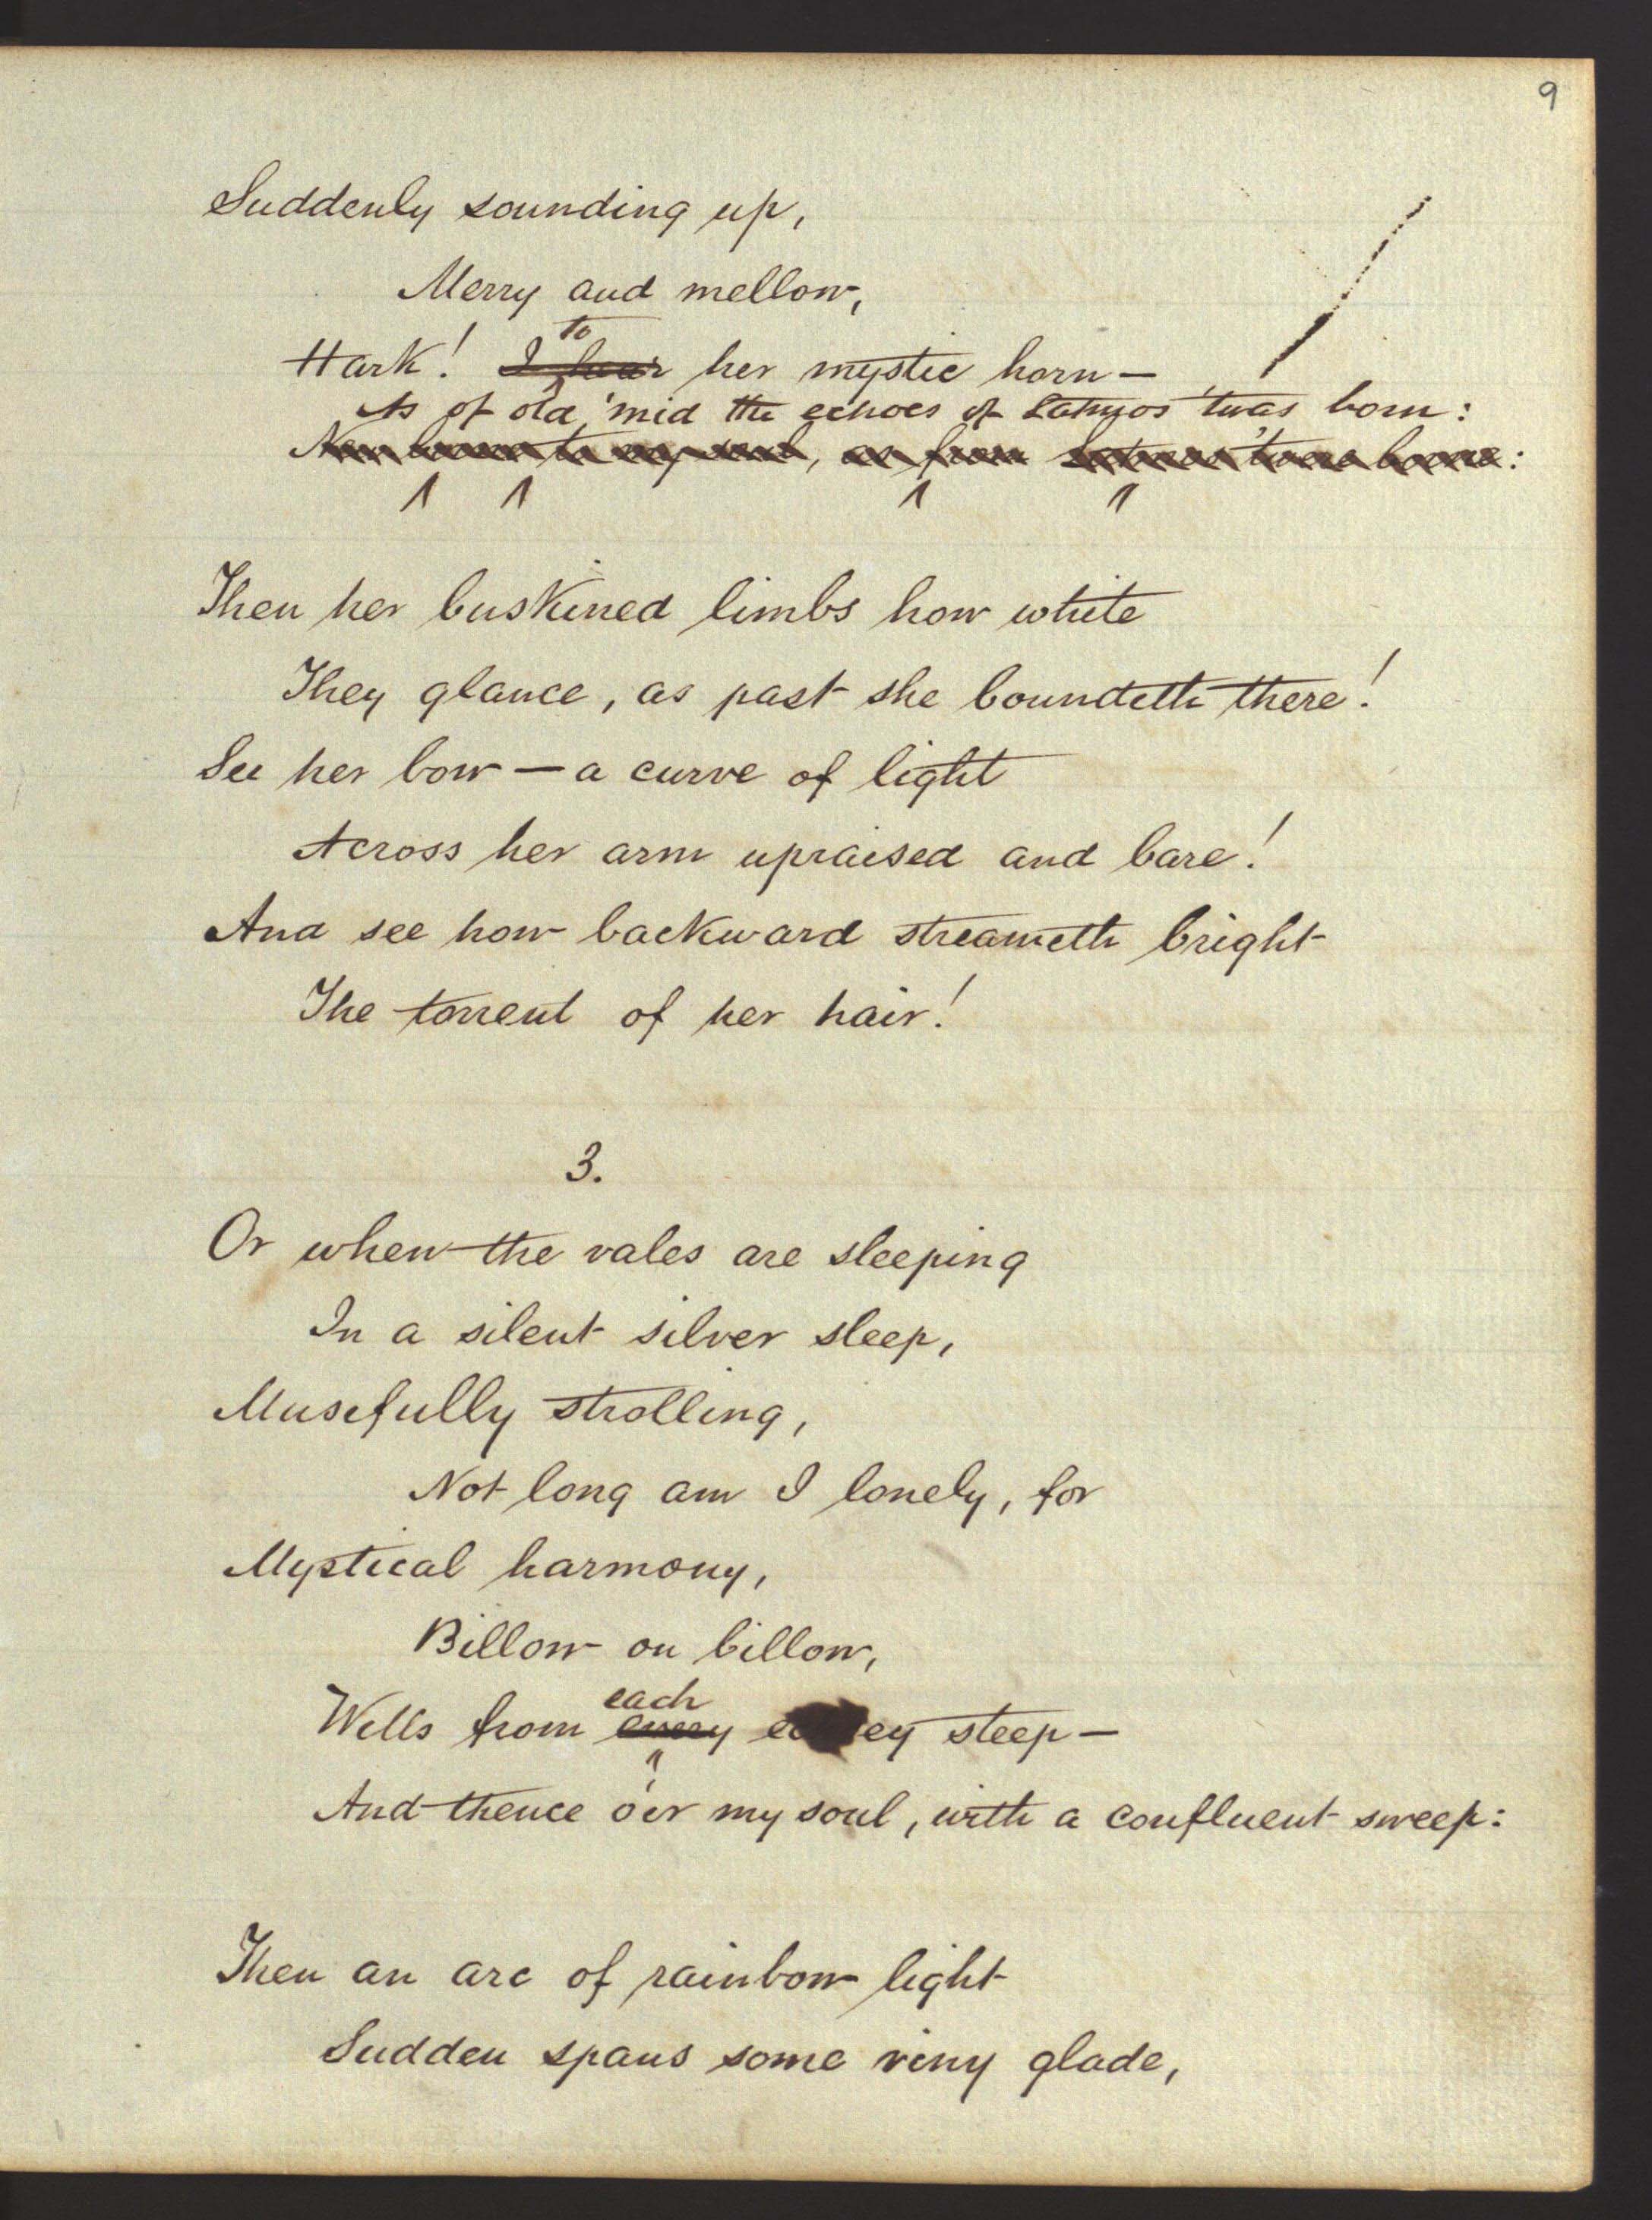 9
Suddenly sounding up,
Merry and mellow,
to
Hark! I hear her mystic horn—
As of old, 'mid the echoes of Latmos 'twas born:
to my soul, as from
Then her buskined limbs how white
They glance, as past she boundeth there!
See her bow — a curve of light
Across her arm upraised and bare!
And see how backward streameth bright
The torrent of her hair!
3.
Or when the vales are sleeping
In a silent silver sleep,
Musefully strolling,
Not long am I lonely, for
Mystical harmony,
Billow on billow,
each
Wells from every steep—
And thence o'er my soul, with a confluent sweep:
Then an arc of rainbow light
Sudden spans some viny glade,